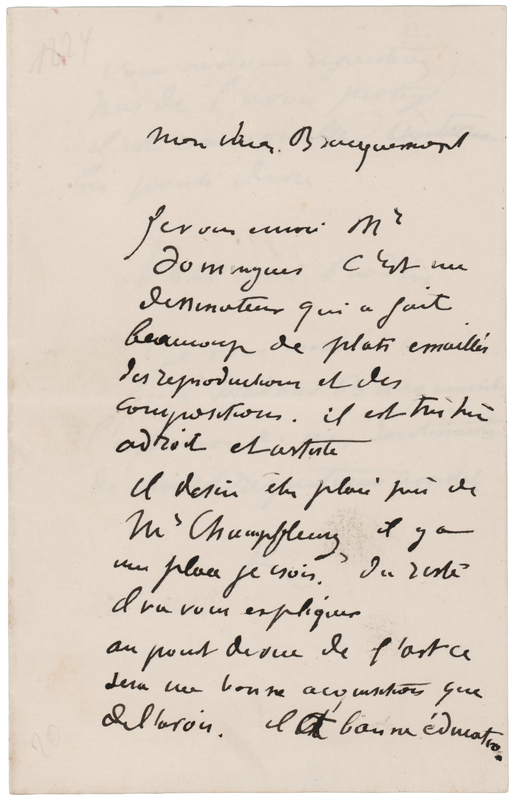 1224
mon cher Bracquemond
Je vous envoi Mr
Domingues C'est un
dessinateur qui a fait
beaucoup de plats emaillés
des reproductions et des
compositions. il est très très
adroit et artiste
il desire être placé près de
Mr Champfleury il y a
une place je crois. du reste
il va vous expliquer
au point de vue de l'art ce
sera une bonne acquisition que
de l'avoir. il est bonne éducation.
20